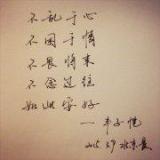 不乱于心
不困于情
不畏将来
不念过往
如此安好
— 丰子恺
2015.3.9